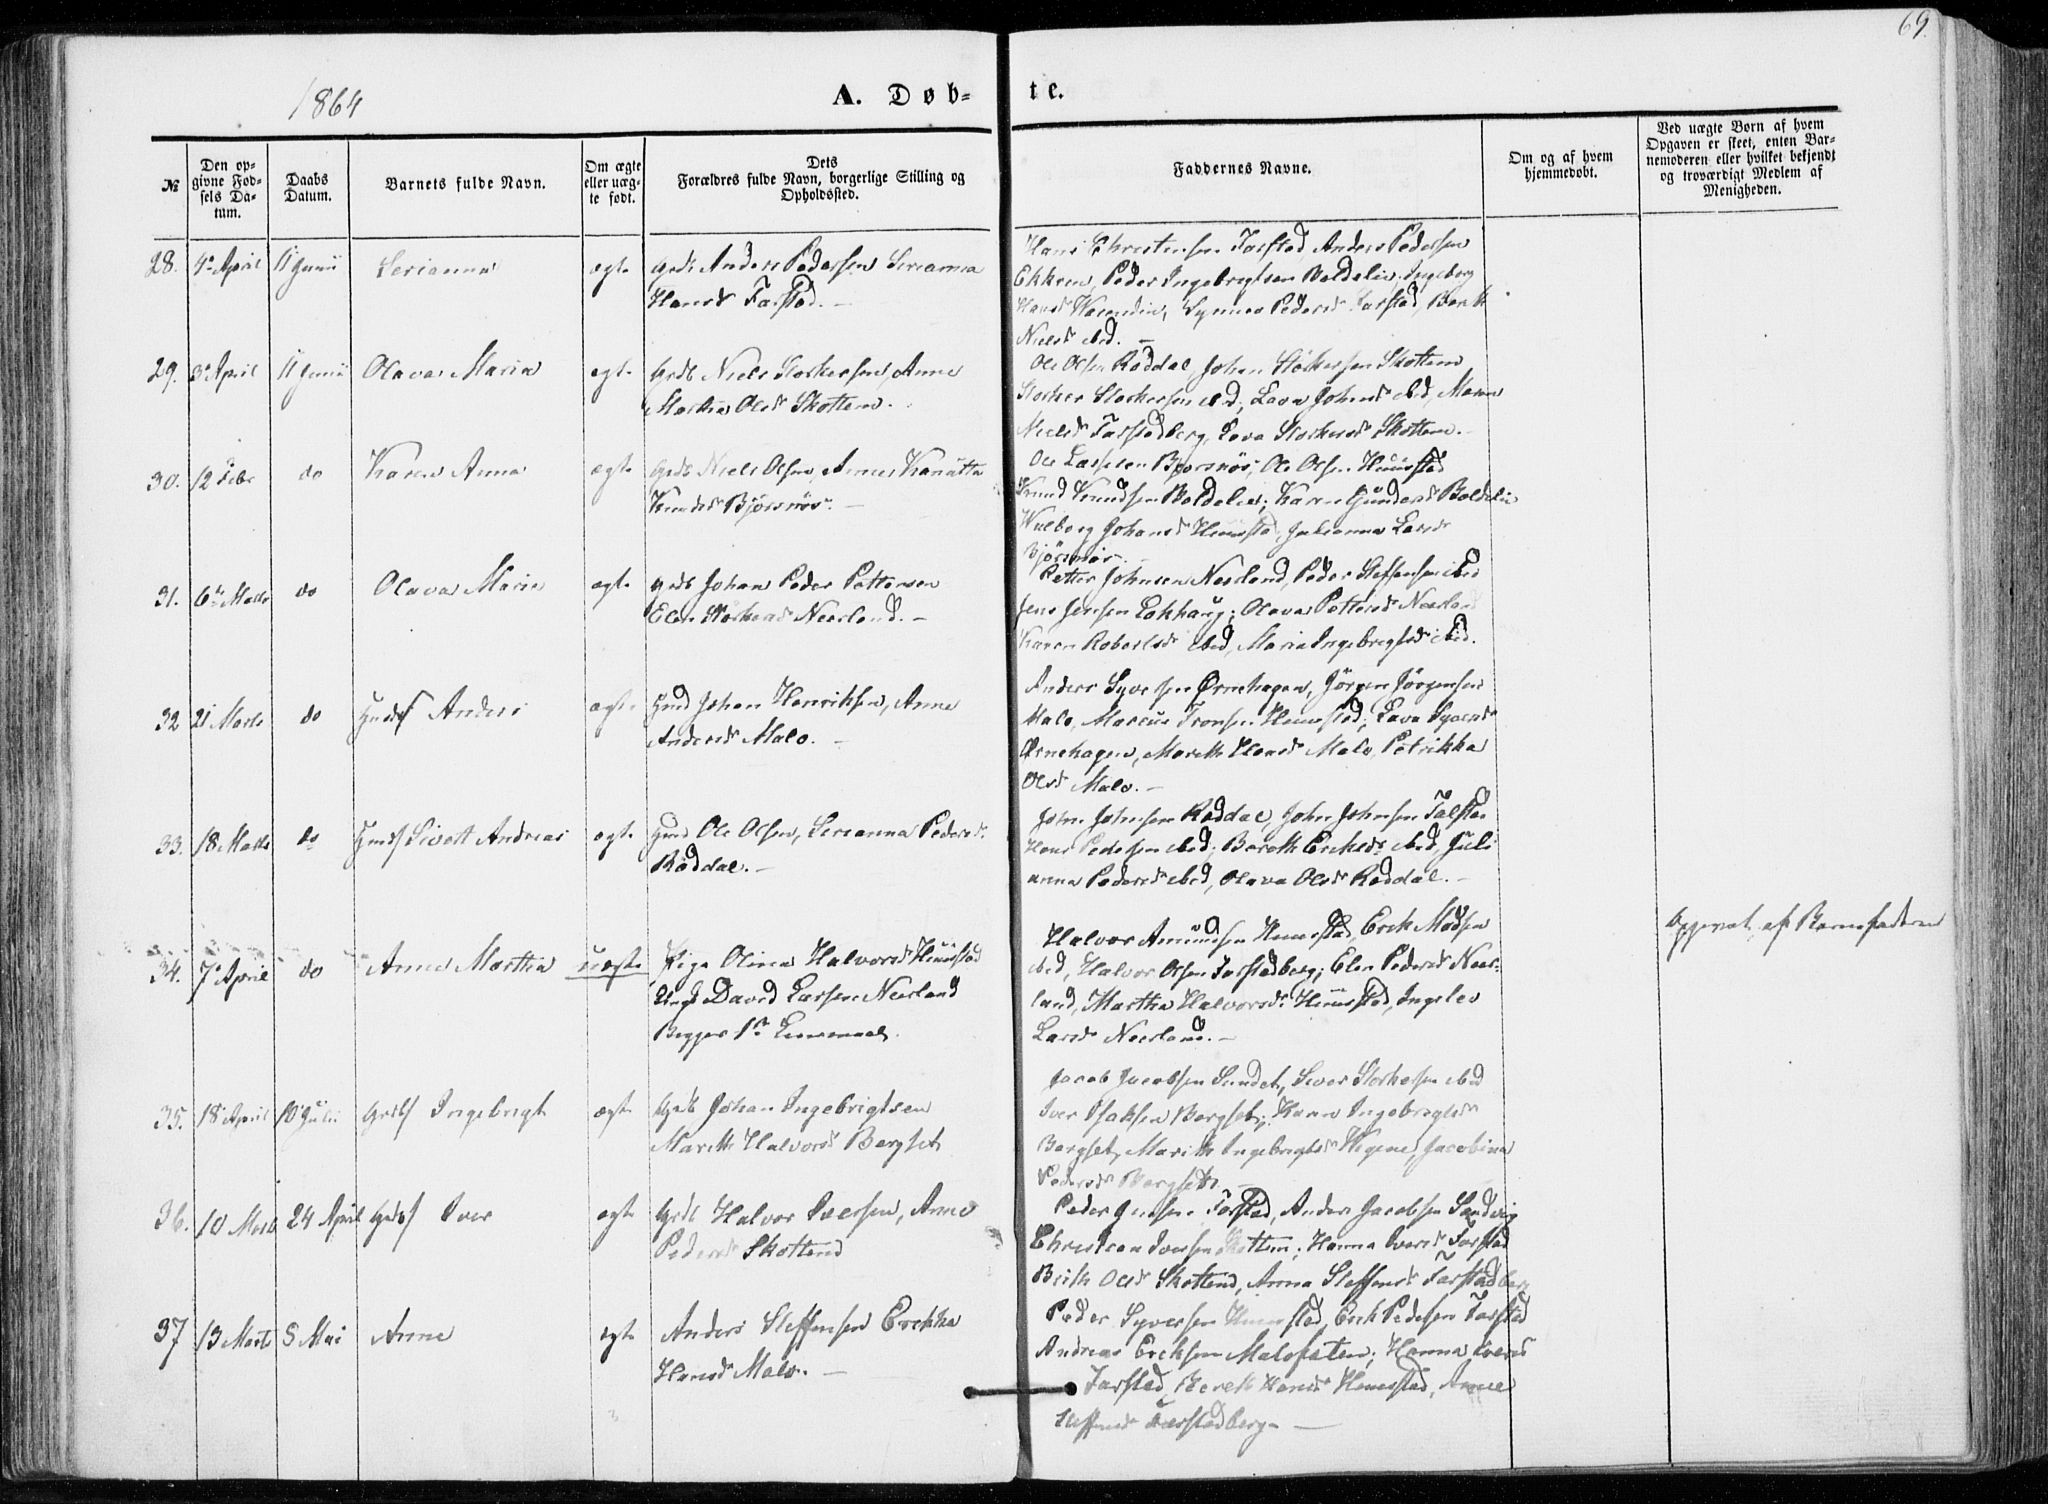 69.
1864
A. Døb-
te.
№
Den op-
givne Fød-
sels Da-
tum.
Daabs
Datum.
Barnets fulde Navn.
Om ægte
eller uæg-
te født.
Dets
Forældres fulde Navn, borgerlige Stilling og
Opholdssted.
Faddernes Navne.
Om og af hvem
hjemmedøbt.
Ved uægte Børn af hvem
Opgaven er skeet, enten Bar-
nemoderen eller hvilket bekjendt
og troværdigt Medlem af
Menigheden.
28. 4de April 11 Junii Serianna ægte Grdb Anders Pedersen Serianna
Hansd Farstad. —
Hans Christensen Farstad, Anders Pedersen
Ekkren, Peder Ingebrigtsen Boldelien, Ingeborg
Hansd Synnev Pedersd Farstad, Berith
Nielsd ibid. —
29. 3de April 11 Junii Olava Maria ægte Grdb Niels Storkersen, Anne
Martha Olsd Skottem.
Ole Olsen Røddal, Johan Storkersen Skottem
Storker Storkersen ibid; Lava Johnsd ibid, Maren
Nielsd Farstadberg, Lava Storkersd Skottem. —
30. 12 Febr do Karen Anna ægte Grdb Niels Olsen, Anne Kanutta
Knudsd Bjørsnøs. —
Ole Larssen Bjørsnøs, Ole Olsen Hunstad
Knud Knudsen Boldelien; Karen Gundersd Boldelien
Wulborg Johansd Hunstad, Julianna Larsd
Bjørsnøs. —
31. 6te Marts do Olava Marie ægte Grdb Johan Peder Pettersen
Elen Storkersd Neerland. —
Petter Johnsen Neerland, Peder Steffensen ibid
Jens Jensen Lokhaug; Olava Pettersd Neerland
Karen Robertsd ibid, Maria Ingebrigtsd ibid.
32 21 Marts do Hmds Anders ægte Hmd Johan Henriksen, Anne
Andersd Malo. —
Anders Syversen Ørnehagen, Jørgen Jørgensen
Malo, Marcus Tronsen Hunstad; Lava Syversd
Ørnehagen, Mareth Hansd Malo, Petrikka
Olsd Malo. —
33. 18 Marts do Hmds Sivert Andreas ægte Hmd Ole Olsen, Serianna Pedersd
Røddal. —
John Johnsen Røddal, John Johnsen Farstad
Hans Pedersen ibid; Bereth Ericksd ibid, Juli
anna Pedersd ibid, Olava Olsd Røddal. —
34. 7de April do Anne Martha uægte Pige Olina Halvorsd Hunstad
Ungk David Larsen Neerland
Begges 1ste Leiermaal.
Halvor Amundsen Hunstad, Erik Madsen
ibid, Halvor Olsen Farstadberg; Elen Pedersd Neer-
land, Martha Halvorsd Hunstad, Ingelev
Larsd Neerland. —
Opgivet af Barnefaderen
35. 18de April 10 Julii Grdbs Ingebrigt ægte Grdb Johan Ingebrigtsen
Mareth Halvorsd Bergset
Jacob Jacobsen Sundet, Siver Storkersen ibid
Iver Isaksen Bergset; Karen Ingebrigtsd
Bergset, Marith Ingebrigtsd Jacobina
Pedersd Bergset.
36. 10 Marts 24 April Grdbs Iver ægte Grdb Halvor Iversen, Anne
Pedersd Skottend
Peder Jensen Farstad, Anders Jacobsen Sandvig
Christian Iversen Skottem; Hanna Iversd Farstad
Brith Olsd Skottend, Anna Steffensd Farstadberg
37 13 Marts 5 Mai Anne ægte Anders Steffensen Erikka
Hansd Malo. —
Peder Syversen Hunstad, Erik Pedersen Farstad
Andreas Ericksen Malofaten; Hanna Iversd
Farstad, Bereth Hansd Hunstad, Anne
Steffensd Farstadberg —